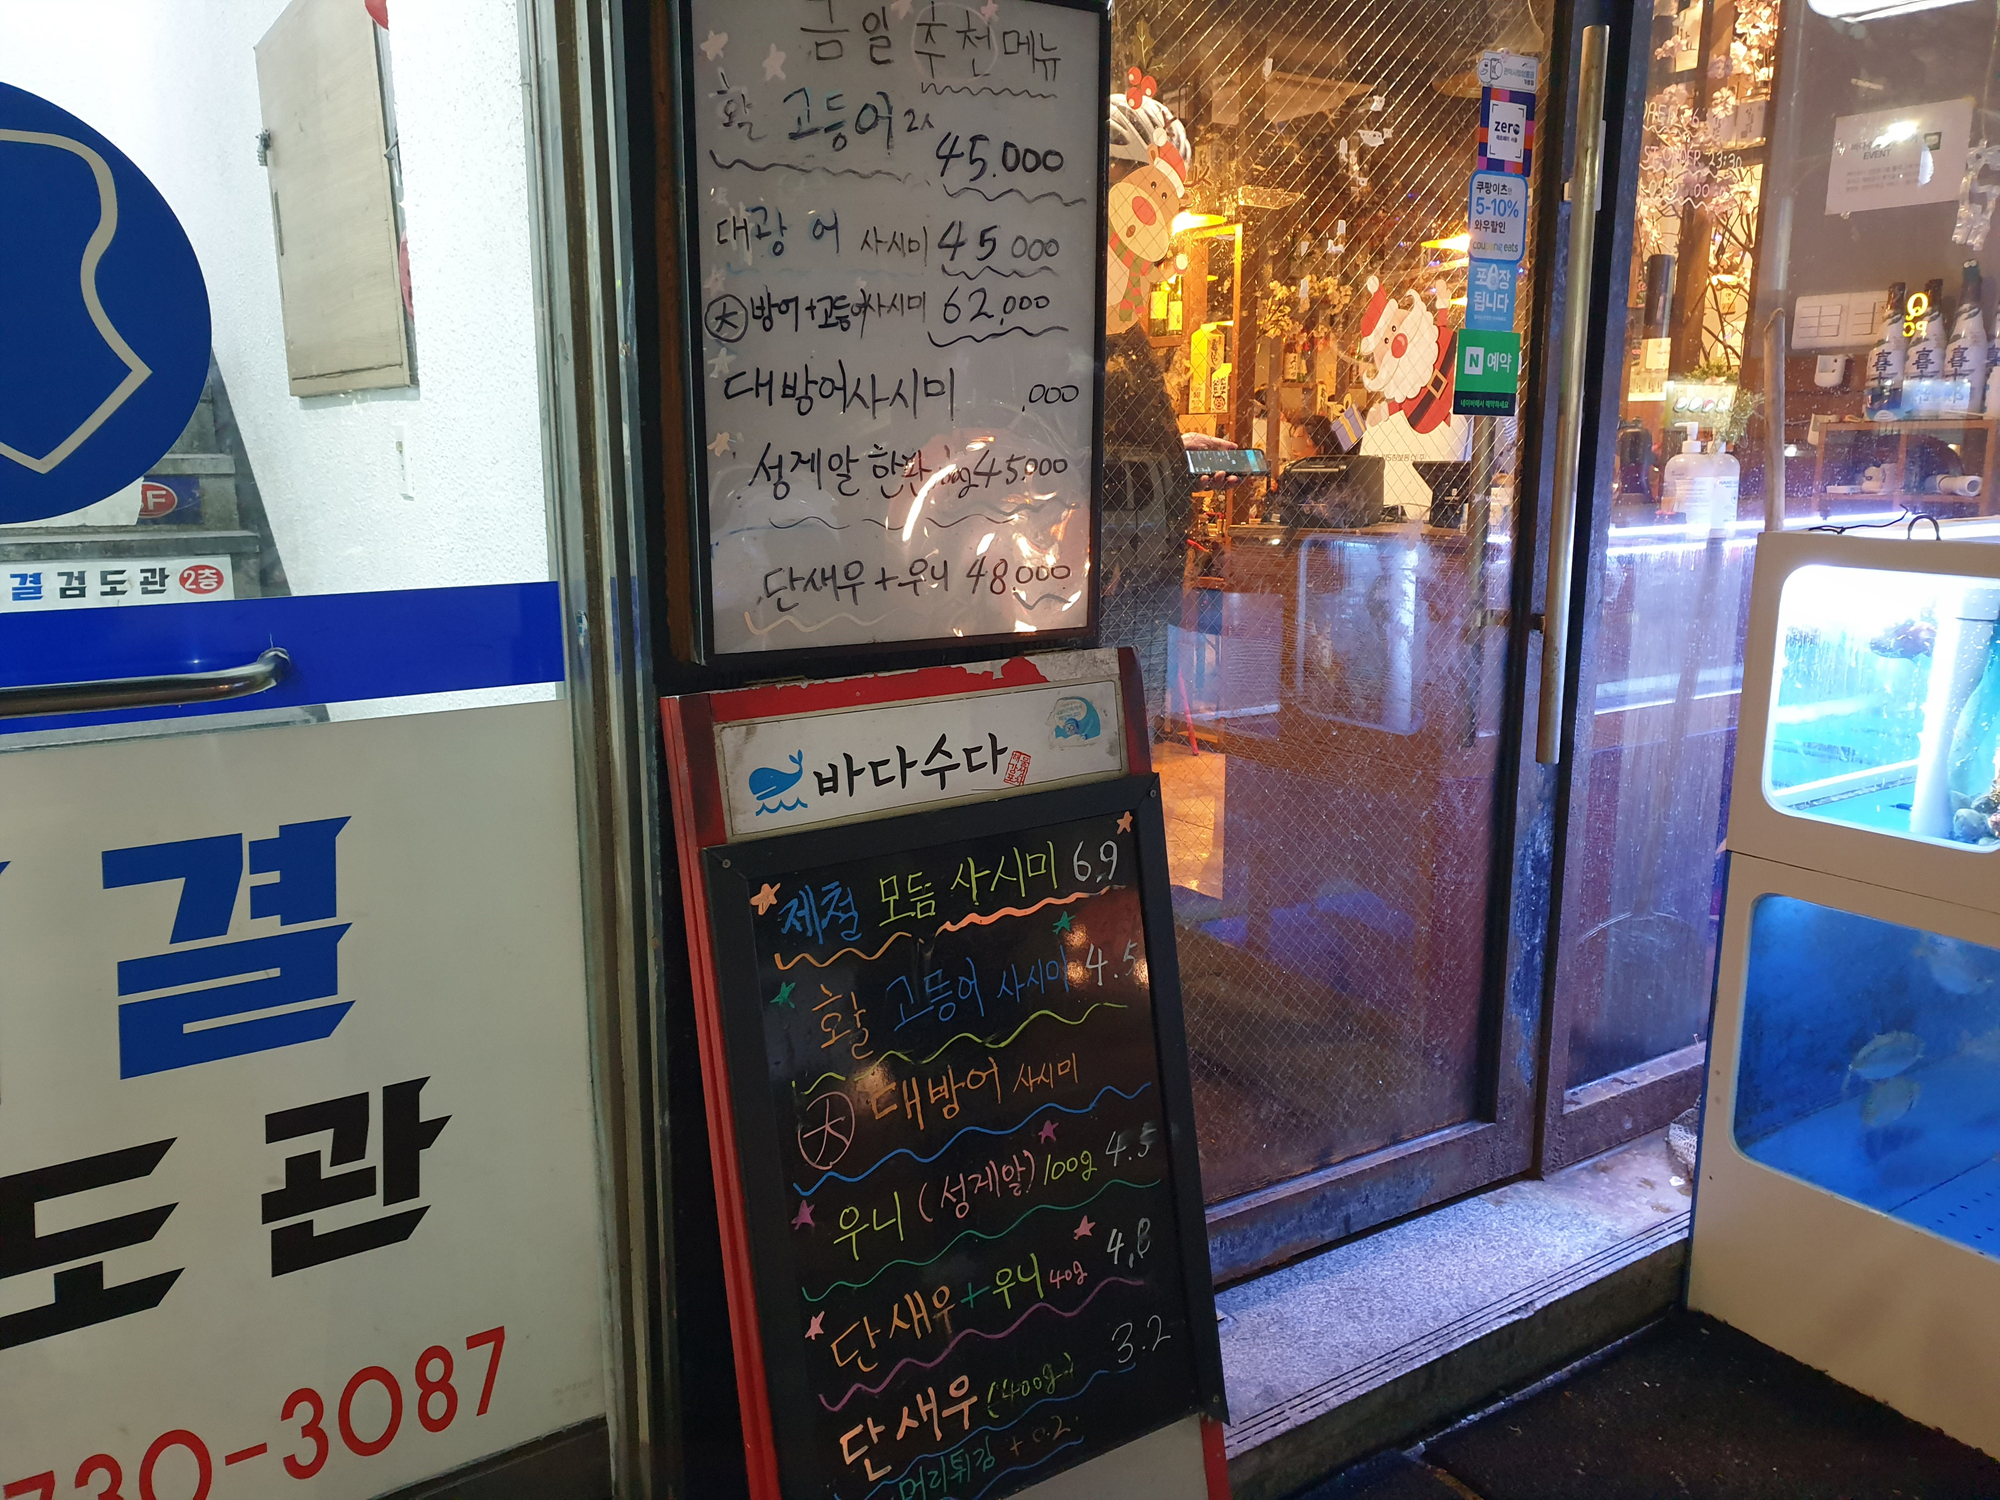 금일 추천메뉴
활 고등어 2人
45.000
대광어 사시미 45000
大 방어+고등어사시미 62,000
대방어사시미 .000
성게알 한판 100g 45.000
단새우+우니 48.000
바다수다
제철 모듬 사시미 6.9
활 고등어 사시미 4.5
大 대방어 사시미
우니 (성게알) 100g 4.5
단새우+우니 40g 4.8
단새우 (400g) 3.2
머리튀김 + 0.2
결검도관 2층
결
도관
730-3087
zero
쿠팡이츠
5-10%
와우할인
coupang eats
포장
됩니다
N 예약
네이버에서 예약하세요
EVENT
23:30